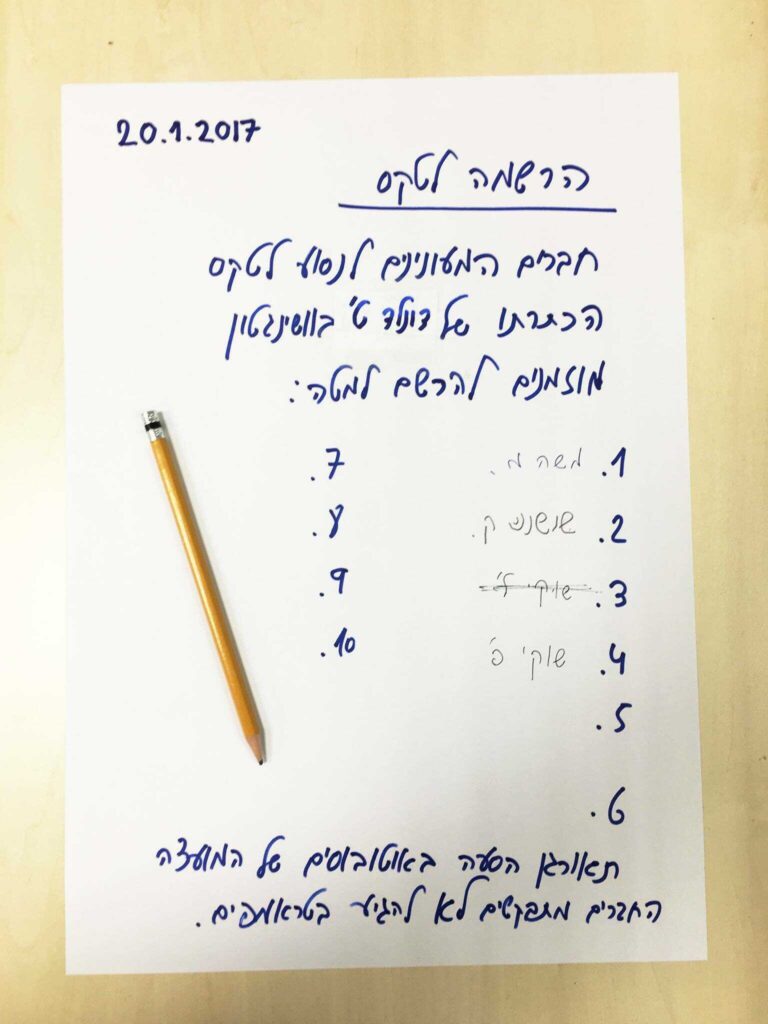 20.1.2017
הרשמה לטקס
חברים המעונינים לנסוע לטקס
הכתרתו של דונלד ט' בוושינגטון
מוזמנים להרשם למטה:
1. משה מ.
2. שושנש ק.
3. שוקי ל'
4. שוקי פ'
5.
6.
7.
8.
9.
10.
תאורגן הסעה באוטובוסים של המועצה
החברים מתבקשים לא להגיע בטראמפים.